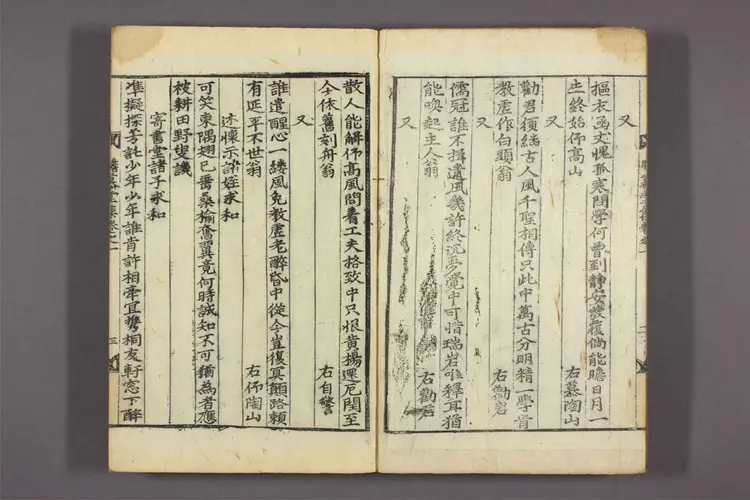 又
摳衣函丈愧孤寒問學何曾到靜安發覆倘能瞻日月一
生終始仰高山 右慕陶山
又
勸君須緬古人風千聖相傳只此中萬古分明精一學肯
教虛作白頭翁 右勸岩
又
儒冠誰不揖遺風幾許終沉夢覺中可惜瑞岩唯釋耳猶
能喚起主人翁 右勸岩
又
散人能解仰高風問看工夫格致中只恨黃楊還厄閏至
今依舊刻舟翁 右自警
又
誰遣醒心一縷風免教虛老醉昏中從今豈復冥顚路賴
有延平不世翁 右仰陶山
述懷示諸姪求和
可笑東隅翅已番桑楡奮翼竟何時誠知不可猶爲者應
被耕田野叟譏
寄書堂諸子求和
準擬探芳託少年少年誰肯許相牽宜携桐友軒窓下醉
集卷之一 三